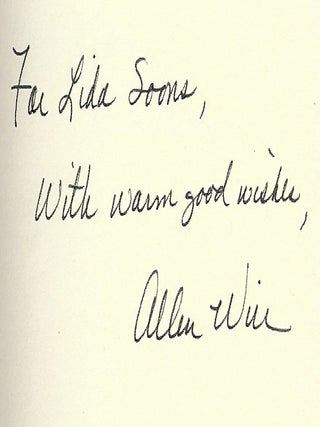 For Lida Soons,
With warm good wishes,
Allen Wier